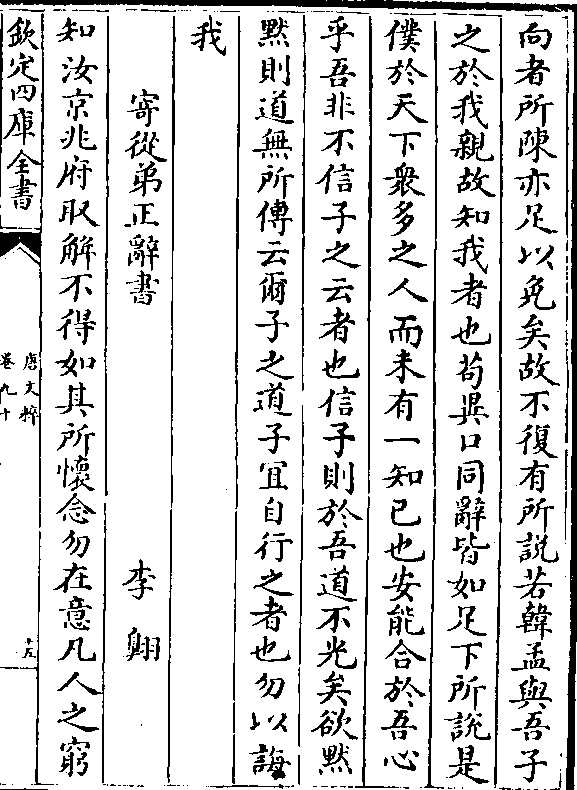 向者所陳亦足以免矣故不復有所說若韓孟與吾子
之於我親故知我者也苟異口同辭皆如足下所說是
僕於天下衆多之人而未有一知已也安能合於吾心
乎吾非不信子之云者也信子則於吾道不光矣欲默
默則道無所傳云爾子之道子宜自行之者也勿以誨
我
寄從弟正辭書 李翺
知汝京兆府取解不得如其所懷念勿在意凡人之窮
欽定四庫全書
唐文粹
卷九十
十五